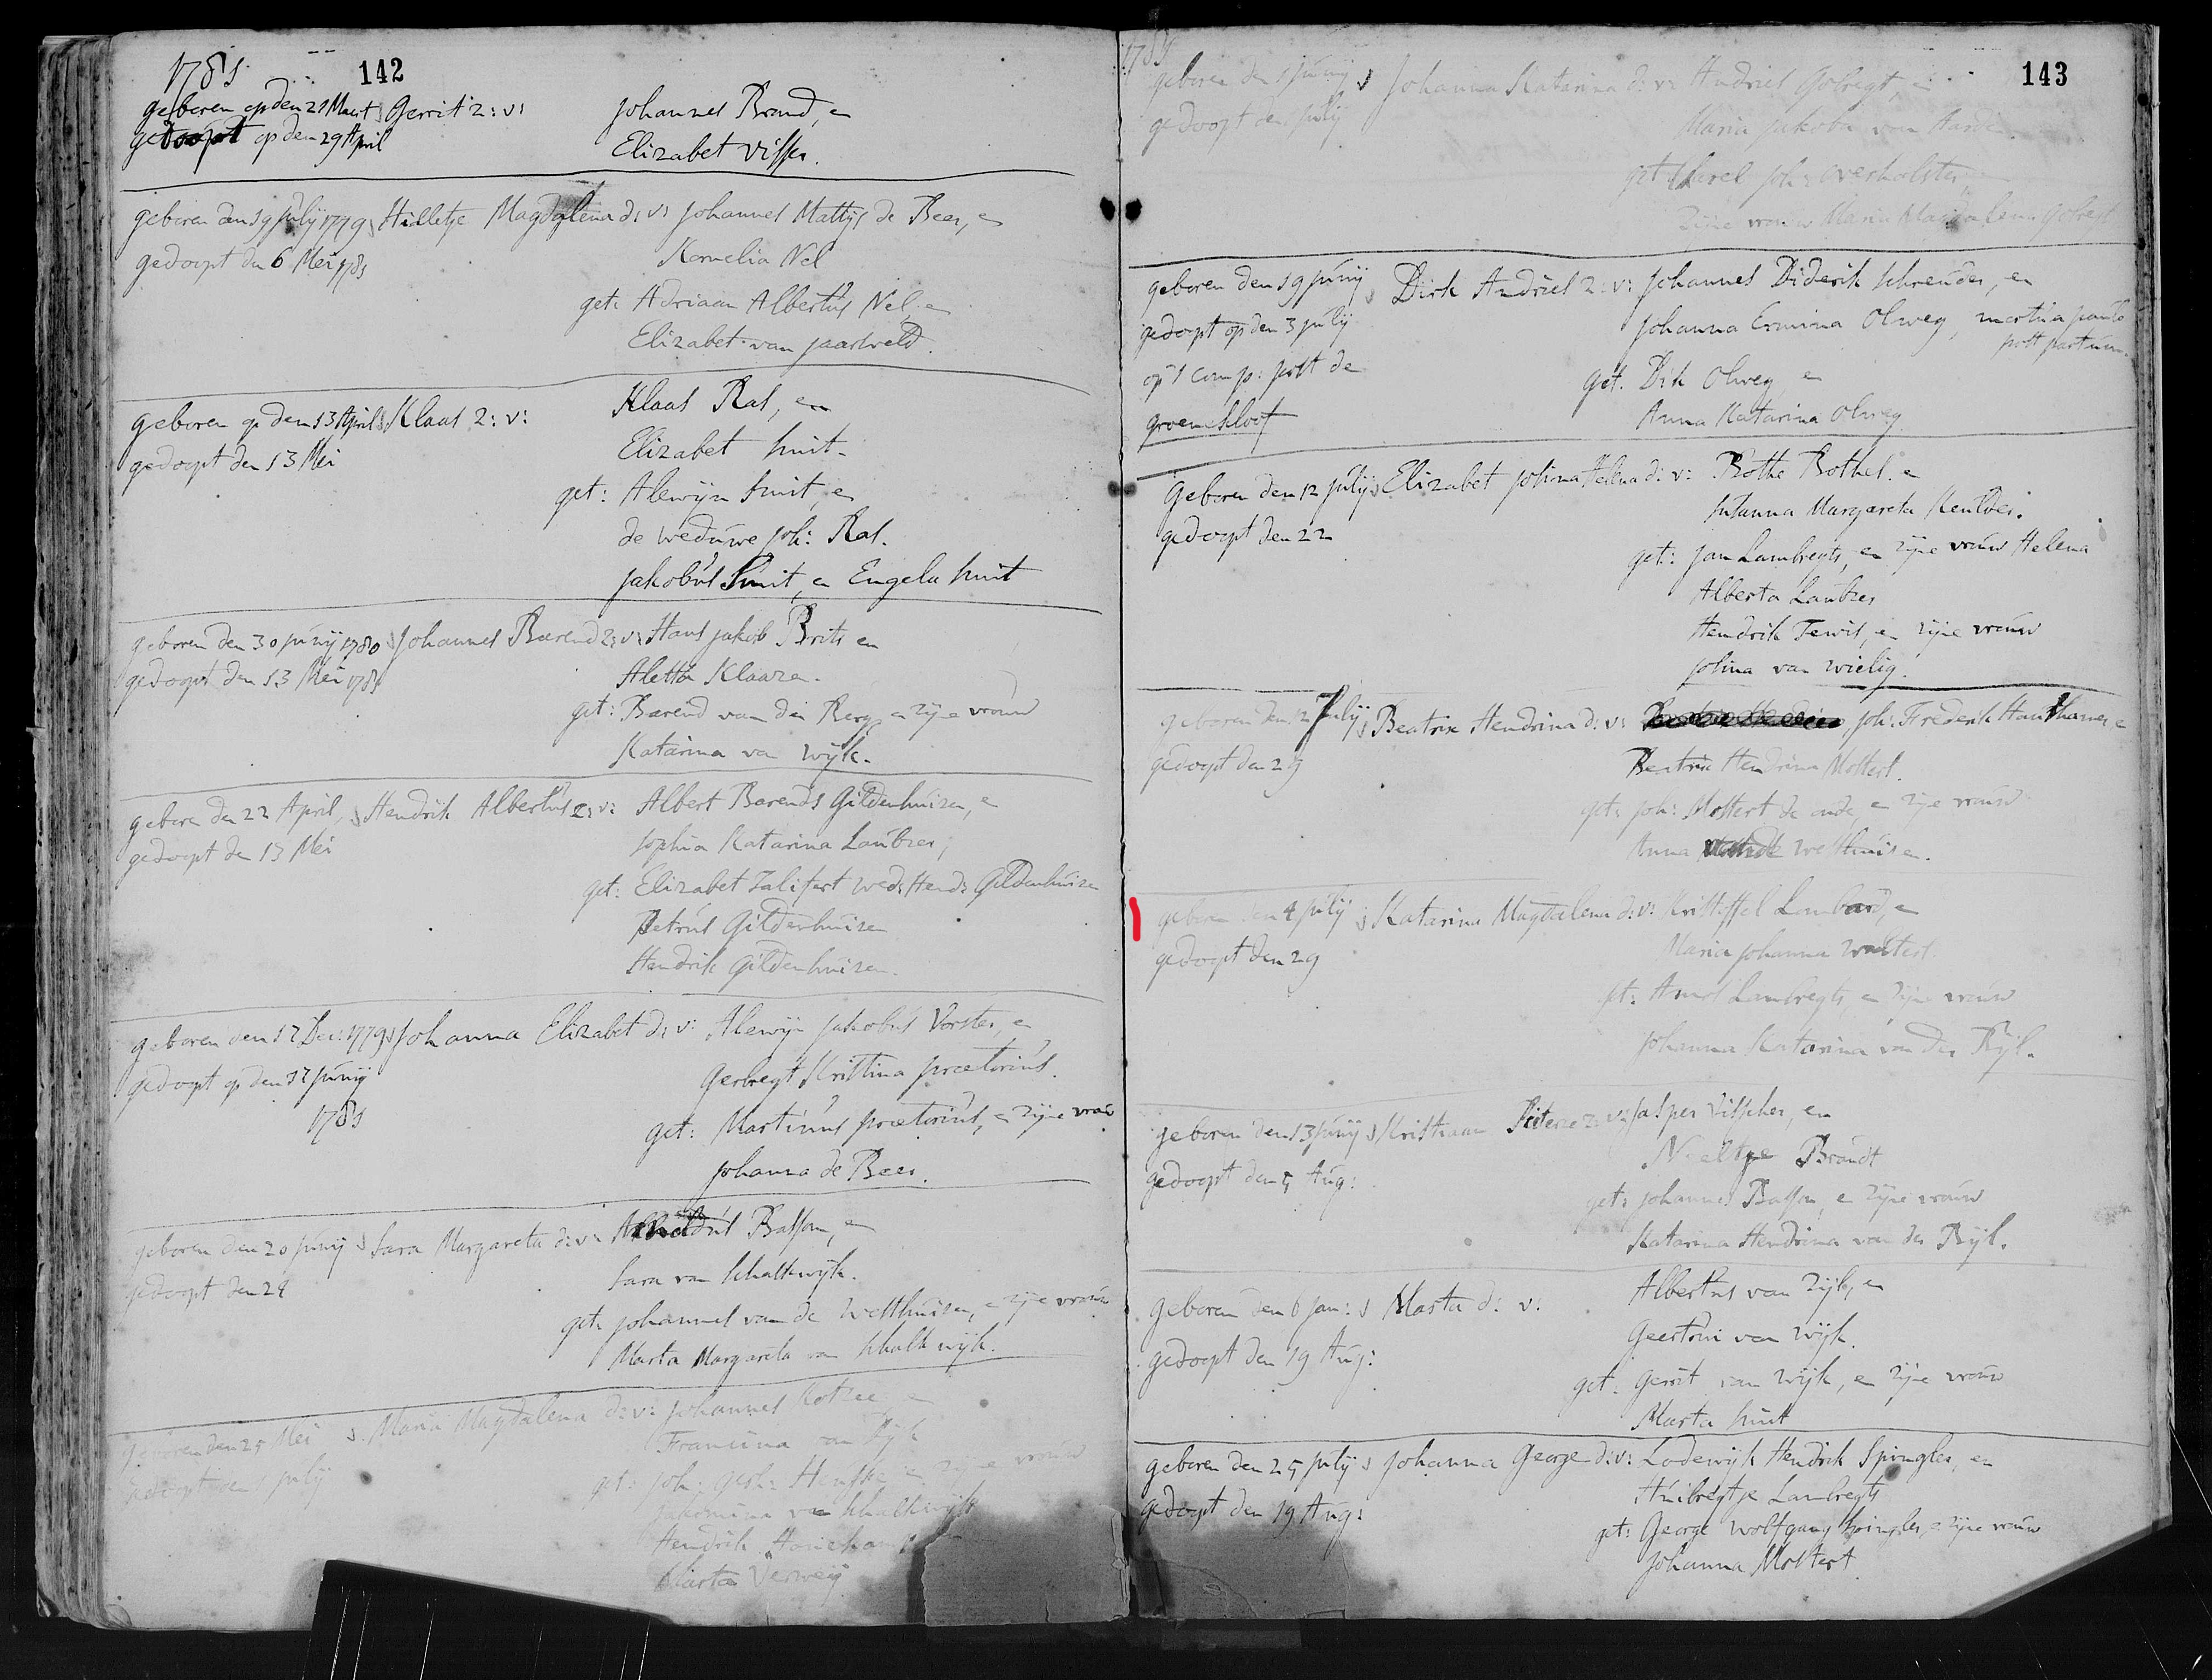 1781
142
geboren op den 21 Maert Gerrit z: v: Johannes Brand, en
gedoopt op den 29 April Elizabet Visser.
geboren den 19 July 1779 Hilletje Magdalena d: v: Johannes Mattys de Beer, en
gedoopt den 6 Mei 1781 Kornelia Nel
get: Adriaan Albertus Nel, en
Elizabet van Jaarsveld.
geboren op den 13 April Klaas z: v: Klaas Ras, en
gedoopt den 13 Mei Elizabet Smit.
get: Alewijn Smit, en
de weduwe Joh: Ras.
Jakobus Smit, en Engela Smit
geboren den 30 Junij 1780 Johannes Barend z: v: Hans Jakob Brits en
gedoopt den 13 Mei 1781 Aletta Klaaze.
get: Barend van den Berg, en zijne vrouw
Katarina van Wijk.
geboren den 22 April, Hendrik Albertus z: v: Albert Barends Gildenhuizen, en
gedoopt den 13 Mei Sophia Katarina Laubser,
get: Elizabet Zalifert wed: Hend: Gildenhuizen
Petrus Gildenhuizen
Hendrik Gildenhuizen.
geboren den 12 Dec: 1779 Johanna Elizabet d: v: Alewijn Jakobus Vorster, en
gedoopt op den 17 Junij Gerbregt Kristina Pretorius.
1781
get: Martinus Pretorius, en zijne vrouw
Johanna de Beer.
geboren den 20 Junij Sara Margareta d: v: Basson, en
gedoopt den 24 Sara van Schalkwijk.
get: Johannes van de Westhuizen, en zijne vrouw
Marta Margareta van Schalkwijk.
geboren den 25 Mei Maria Magdalena d: v: Johannes Kotzee, en
gedoopt den 1 July Francina van Dijk
get: Joh: en zijne vrouw
Jakomina van Schalkwijk
Hendrik
Marta Verweij
1781
143
geboren den 1 Junij Johanna Katarina d: v: Andries Gobregt, en
gedoopt den July Maria Jakoba van Aarde.
get: Karel Joh: Overholster, en
zijne vrouw Maria Magdalena Gobregt
geboren den 19 Junij Dirk Andries z: v: Johannes Diderik Schreuder, en
gedoopt op den 3 July Johanna Ermina Olweg, mortua paulo
post partum.
op 's Comp: post de get. Dirk Olweg en
groenekloof Anna Katarina Olweg
Geboren den 12 July Elizabet Josina Helena d: v: Bothe Bothes. en
gedoopt den 22 Susanna Margareta Keulder.
get: Jan Lambregts, en zijne vrouw Helena
Alberta Laubzer
Hendrik Tewis, en zijne vrouw
Josina van Wielig.
geboren den 12 July Beatrix Hendrina d: v: Joh: Frederik Hansthamer en
gedoopt den 29 Beatrix Hendrina Mostert.
get: Joh: Mostert de oude, en zijne vrouw
Anna Westhuisen.
geboren den 4 July Katarina Magdalena d: v: Kristoffel Lombard, en
gedoopt den 29 Maria Johanna Woutert.
get: Arnol Lambregts, en zijne vrouw
Johanna Katarina van der Bijl.
geboren den 13 Junij Kristiaan Pieterze z: v: Jasper Visscher, en
gedoopt den 5 Aug: Neeltje Brandt
get: Johannes Basson, en zijne vrouw
Katarina Hendrina van der Bijl.
geboren den 6 Jan: Marta d: v: Albertus van Zijl, en
gedoopt den 19 Aug: Geertrui van Wijk.
get: Gerrit van Wijk, en zijne vrouw
Marta Smit
geboren den 25 July Johanna George d: v: Lodewijk Hendrik Spingler, en
gedoopt den 19 Aug: Huibregtje Lambregts
get: George Wolfgang Spingler, en zijne vrouw
Johanna Mostert